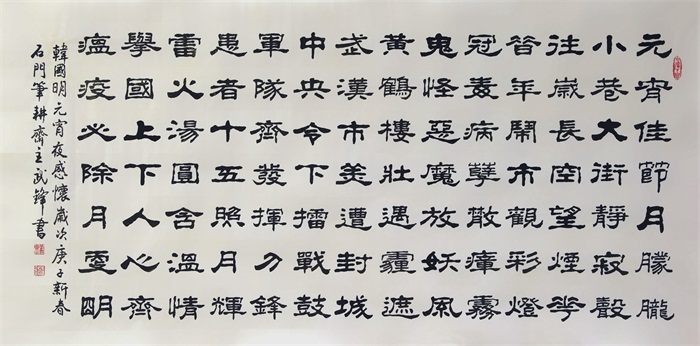 元宵佳節月朦朧
小巷大街靜寂聲
往歲長空望煙花
昔年鬧市觀彩燈
冠毒病孽散瘴霧
鬼怪惡魔放妖風
黃鶴樓壯遇霾遮
武漢市美遭封城
中央令下擂戰鼓
軍隊齊發揮刀鋒
患者十五照月輝
雷火湯圓含溫情
舉國上下人心齊
瘟疫必除月更明
韓國明元宵夜感懷歲次庚子新春
石門筆耕齋主武鋒書